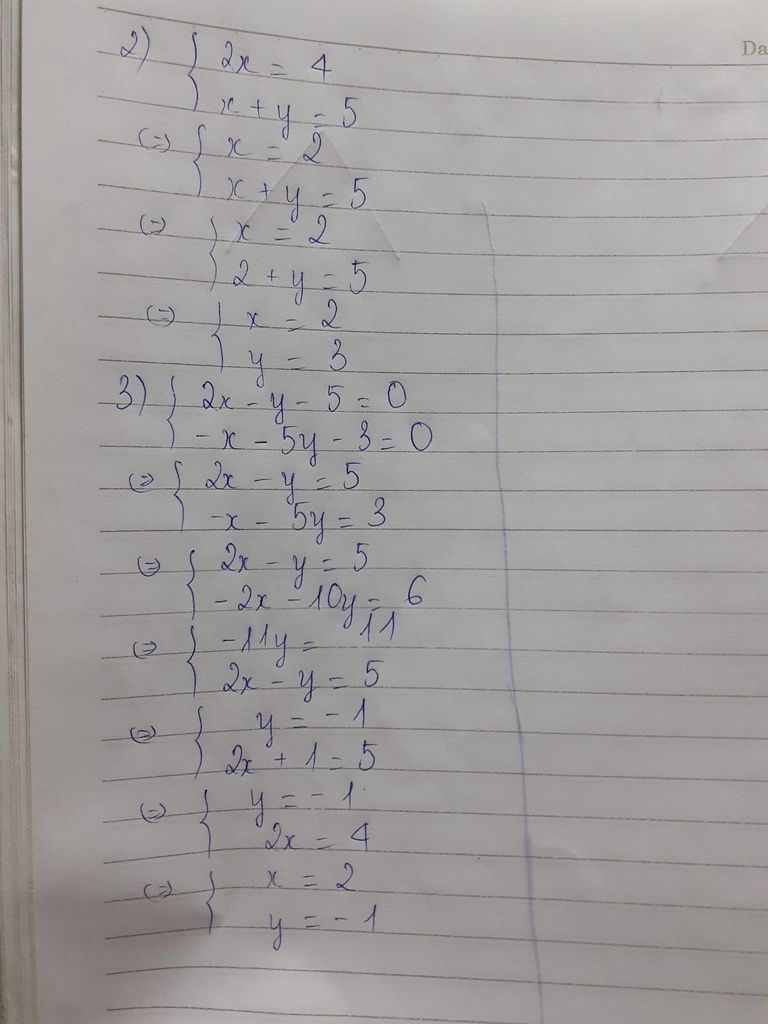 Da
2) { 2x = 4
x + y = 5
(=) { x = 2
x + y = 5
(=) { x = 2
2 + y = 5
(=) { x = 2
y = 3
3) { 2x - y - 5 = 0
-x - 5y - 3 = 0
(=) { 2x - y = 5
-x - 5y = 3
(=) { 2x - y = 5
-2x - 10y = 6
(=) { -11y = 11
2x - y = 5
(=) { y = -1
2x + 1 = 5
(=) { y = -1
2x = 4
(=) { x = 2
y = -1